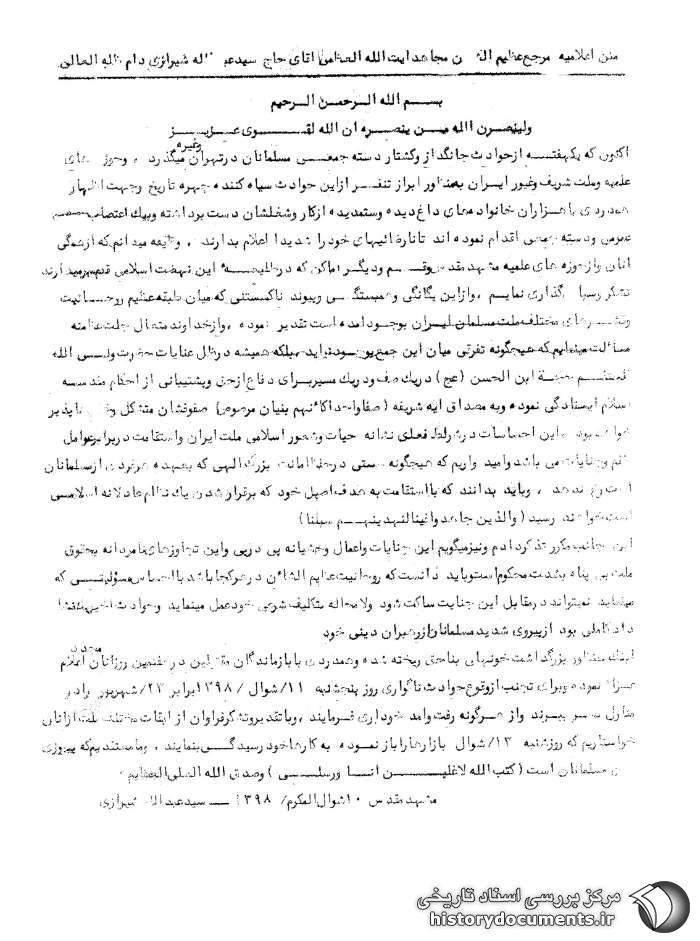 متن اعلامیه مرجع عظیم مجاهد ایت الله العظمی اقای حاج سید شیرازی دام ظله العالی
بسم الله الرحمن الرحیم
ولینصرن الله مـن ینصره ان الله لقـوی عـزیـز
اکنون که یکهفتـه ازحوادث جانگداز وکشتار دسته جمعـی مسلمانان درتهران وغیره میگذرد وحوزه های
علمیه وملت شریف وغیور ایران بمنظور ابراز تنفر ازاین حوادث سیاه کننده چهره تاریخ وجهت اظهار
همدردی باهزاران خانواده های داغ دیده وستمدیده ازکار وشغلشان دست برداشته وبیک اعتصاب
عمومی ودسته جمعی اقدام نموده اند تانارضائیهای خودرا شدیدا اعلام بدارند ، وظیفه میدانم که ازهمگی
انان وازحوزه های علمیه مشهد مقدس وقـم ودیگر اماکن که درطلیعـه این نهضت اسلامی قدم برمیدارند
تشکر گذاری نمایم ، وازاین یگانگی وهمبستگـی وپیوند ناگسستنی که میان طبقه عظیم روحانیت
وقشرهای مختلف ملت مسلمان ایران بوجود امده است تقدیر نموده ، وازخداوند متعال جلت عظمته
مسالت مینمایم که هیچگونه تفرقی میان این جمع بوجود نیاید ، بلکه همیشه درظل عنایات حضرت ولـی الله
ابن الحسن (عج) دریک صف ودریک مسیر برای دفاع ازحق وپشتیبانی از احکام مقدسه
اسلام ایستادگی نموده وبه مصداق ایه شریفه (صفا واحدا کانهم بنیان مرصوص) صفوفشان متشکل
بود این احساسات درشرایط فعلی نشانه حیات وشعور اسلامی ملت ایران واستقامت دربرابر عوامل
وجنایات می باشد وامید واریم که هیچگونه سستی درحفظ امانت بزرگ الهی که بعهده هرفردی ازمسلمانان
است رخ ندهد ، وباید بدانند که بااستقامت به هدف اصیل خود که برقرار شدن یک نظام عادلانه اسلامـی
است خواهند رسید (والذین جاهدوا فینا لنهدینهـم سبلنا)
این جانب مکرر تذکر دادم ونیز میگویم این جنایات واعمال وحشیانه پی درپی واین تجاوزهای بحقوق
ملت بی پناه بشدت محکوم است وباید دانست که روحانیت عظیم الشان درهرکجا باشد بااحساس مسئولیتـی که
مینماید نمیتواند درمقابل این جنایت ساکت شود ولامحاله بتکلیف شرعی خود عمل مینماید وحوادث اخیر
بود ازپیروی شدید مسلمانان از رهبران دینی خود
اینک بمنظور بزرگداشت خونهای بناحق ریخته شده وهمدردی با بازماندگان مقتولین درهفتمین روز انان مجدد اعلام
عـزا نموده وبرای تجنب ازوقوع حوادث ناگواری روز پنجشنبه ۱۱/شوال /۱۳۹۸ برابر ۲۳/شهریور را در
منازل بسر ببرند واز هرگونه رفت وامد خودداری فرمایند ، وباتقدیر وتشکر فراوان از طبقات مختلف ملت ازانان
خواستاریم که روزشنبه ۱۳/شوال بازارها راباز نموده به کارها خود رسیدگـی بنمایند ، وما معتقدیم که پیروزی
مسلمانان است (کتب الله لاغلبـن انـا ورسلـی) وصدق الله العلی العظیم
مشهد مقدس ۱۰ شوال المکرم/ ۱۳۹۸ ــ سید عبدالله شیرازی
مرکز بررسی اسناد تاریخی
historydocuments.ir